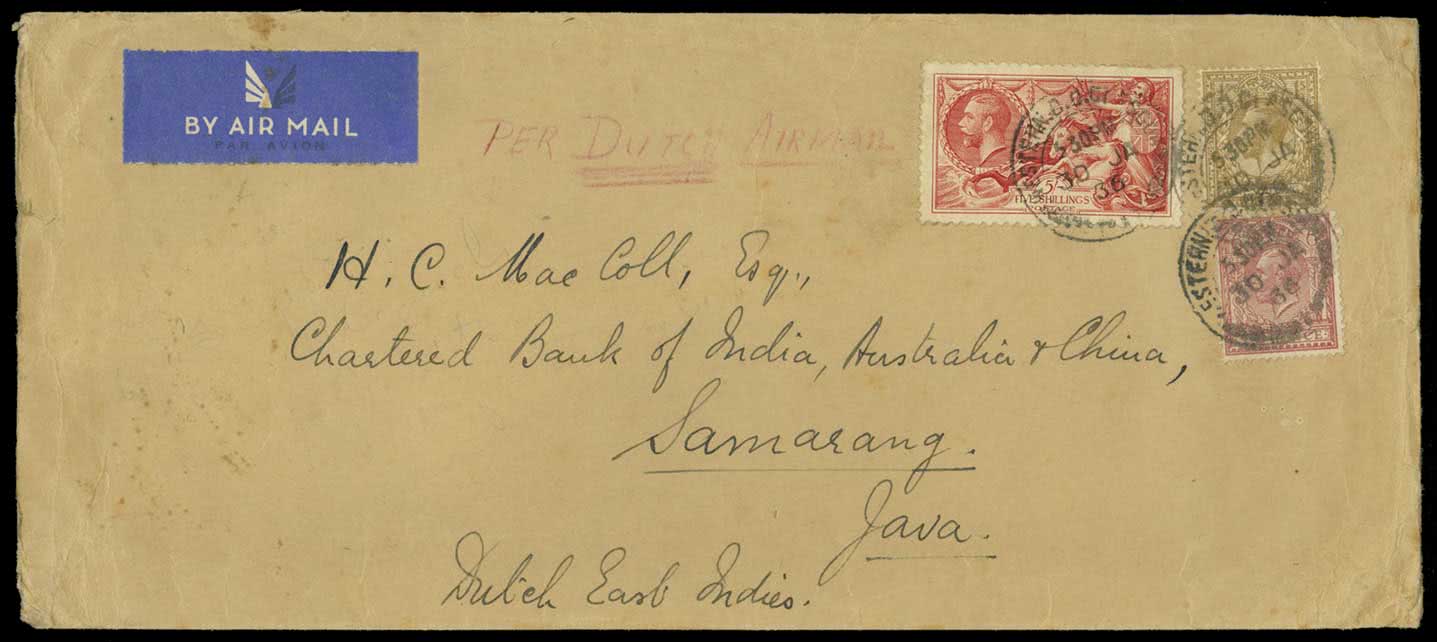 BY AIR MAIL
PAR AVION
PER DUTCH AIRMAIL
5/-
FIVE SHILLINGS
POSTAGE
5 30 PM
30 JA
36
5 30 PM
30 JA
30 JA
36
H. C. Mac Coll, Esq.,
Chartered Bank of India, Australia & China,
Samarang.
Java.
Dutch East Indies.